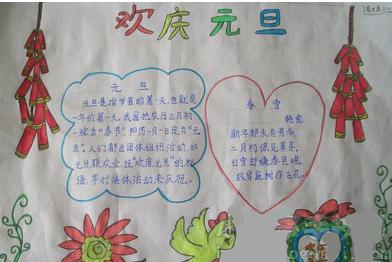 欢庆元旦
元 旦
元旦是指岁首的第一天,也就是
一年的第一天。我国把农历正月初
一称为“春节”,阳历一月一日定为“元
旦”。人们都会团体组织活动,如
元旦联欢会,挂“欢度元旦”的标
语,举行集体活动来庆祝。
春 雪
韩愈
新年都未有芳华
二月初惊见草芽。
白雪却嫌春色晚
故穿庭树作飞花。
欢庆